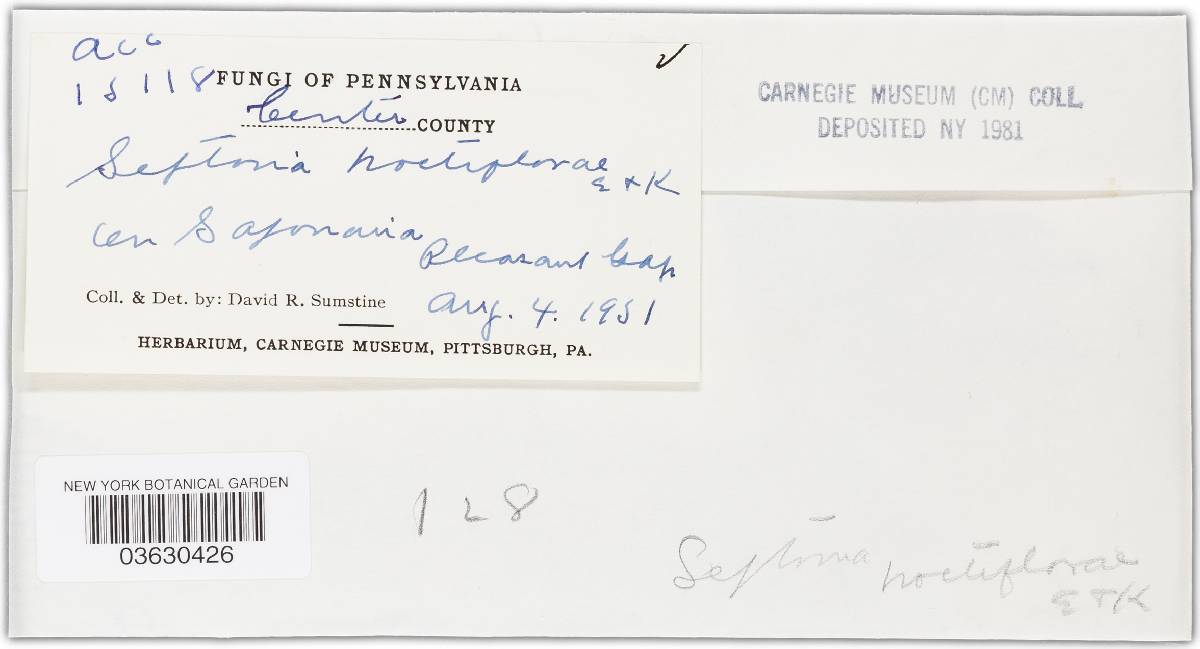 acc
15118
FUNGI OF PENNSYLVANIA
Center COUNTY
Septoria noctiflorae
E & K
on Saponaria
Pleasant Gap
Coll. & Det. by: David R. Sumstine
Aug. 4. 1951
HERBARIUM, CARNEGIE MUSEUM, PITTSBURGH, PA.
CARNEGIE MUSEUM (CM) COLL
DEPOSITED NY 1981
NEW YORK BOTANICAL GARDEN
03630426
128
Septoria noctiflorae
E & K